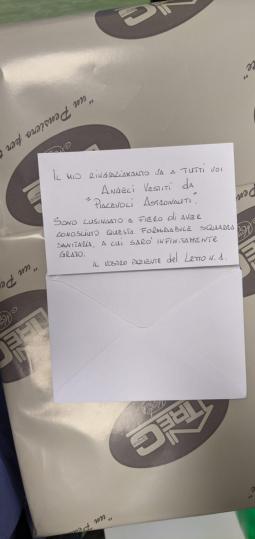 "un Pensiero per
IL MIO RINGRAZIAMENTO VA A TUTTI VOI
ANGELI VESTITI DA
"PIACEVOLI ASTRONAUTI".
SONO LUSINGATO E FIERO DI AVER
CONOSCIUTO QUESTA FORMIDABILE SQUADRA
SANITARIA, A CUI SARO' INFINITAMENTE
GRATO.
IL VOSTRO PAZIENTE del LETTO N. 1.
TRE G
"un Pens